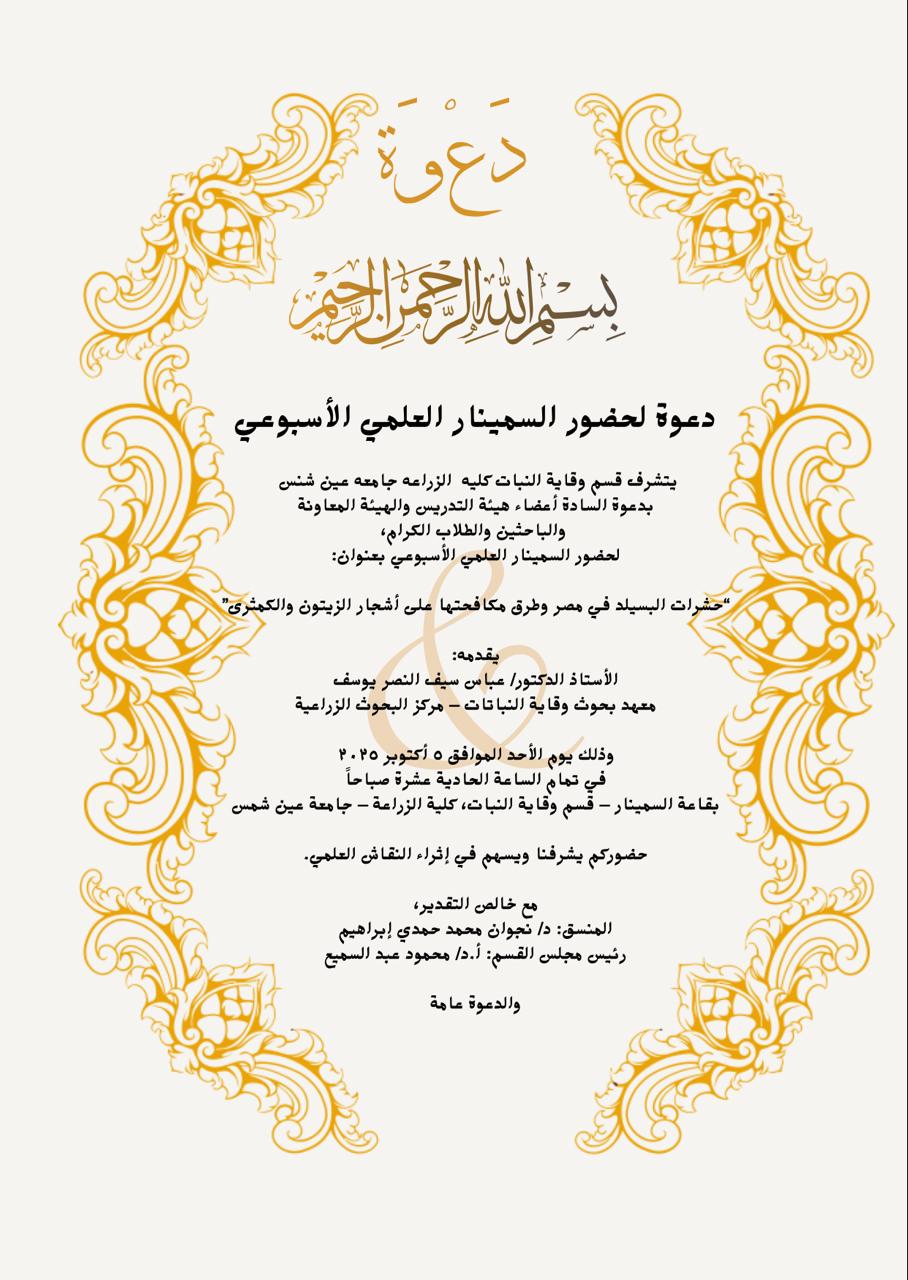 دَعْوَة
بِسْمِ اللهِ الرَّحْمَنِ الرَّحِيمِ
دعوة لحضور السمينار العلمي الأسبوعي
يتشرف قسم وقاية النبات كليه الزراعه جامعه عين شنس
بدعوة السادة أعضاء هيئة التدريس والهيئة المعاونة
والباحثين والطلاب الكرام،
لحضور السمينار العلمي الأسبوعي بعنوان:
“حشرات البسيلد في مصر وطرق مكافحتها على أشجار الزيتون والكمثرى”
يقدمه:
الأستاذ الدكتور/ عباس سيف النصر يوسف
معهد بحوث وقاية النباتات – مركز البحوث الزراعية
وذلك يوم الأحد الموافق ٥ أكتوبر ٢٠٢٥
في تمام الساعة الحادية عشرة صباحاً
بقاعة السمينار – قسم وقاية النبات، كلية الزراعة – جامعة عين شمس
حضوركم يشرفنا ويسهم في إثراء النقاش العلمي.
مع خالص التقدير،
المنسق: د/ نجوان محمد حمدي إبراهيم
رئيس مجلس القسم: أ.د/ محمود عبد السميع
والدعوة عامة
&